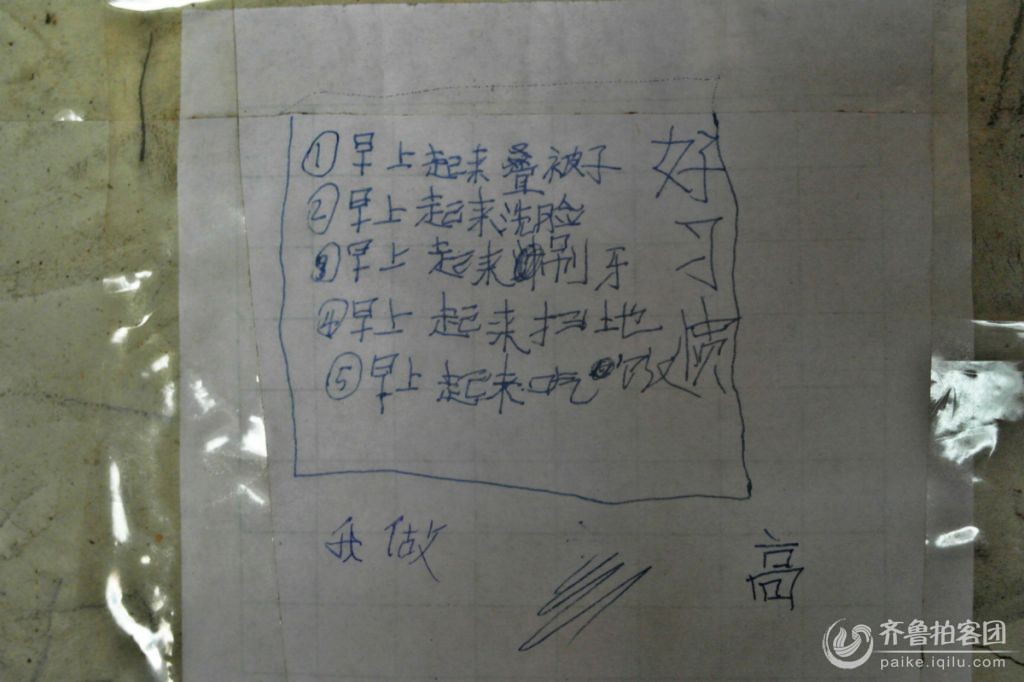 ①早上起来叠被子
②早上起来洗脸
③早上起来刷牙
④早上起来扫地
⑤早上起来吃饭
好习惯
我做
高
齐鲁拍客团
paike.iqilu.com